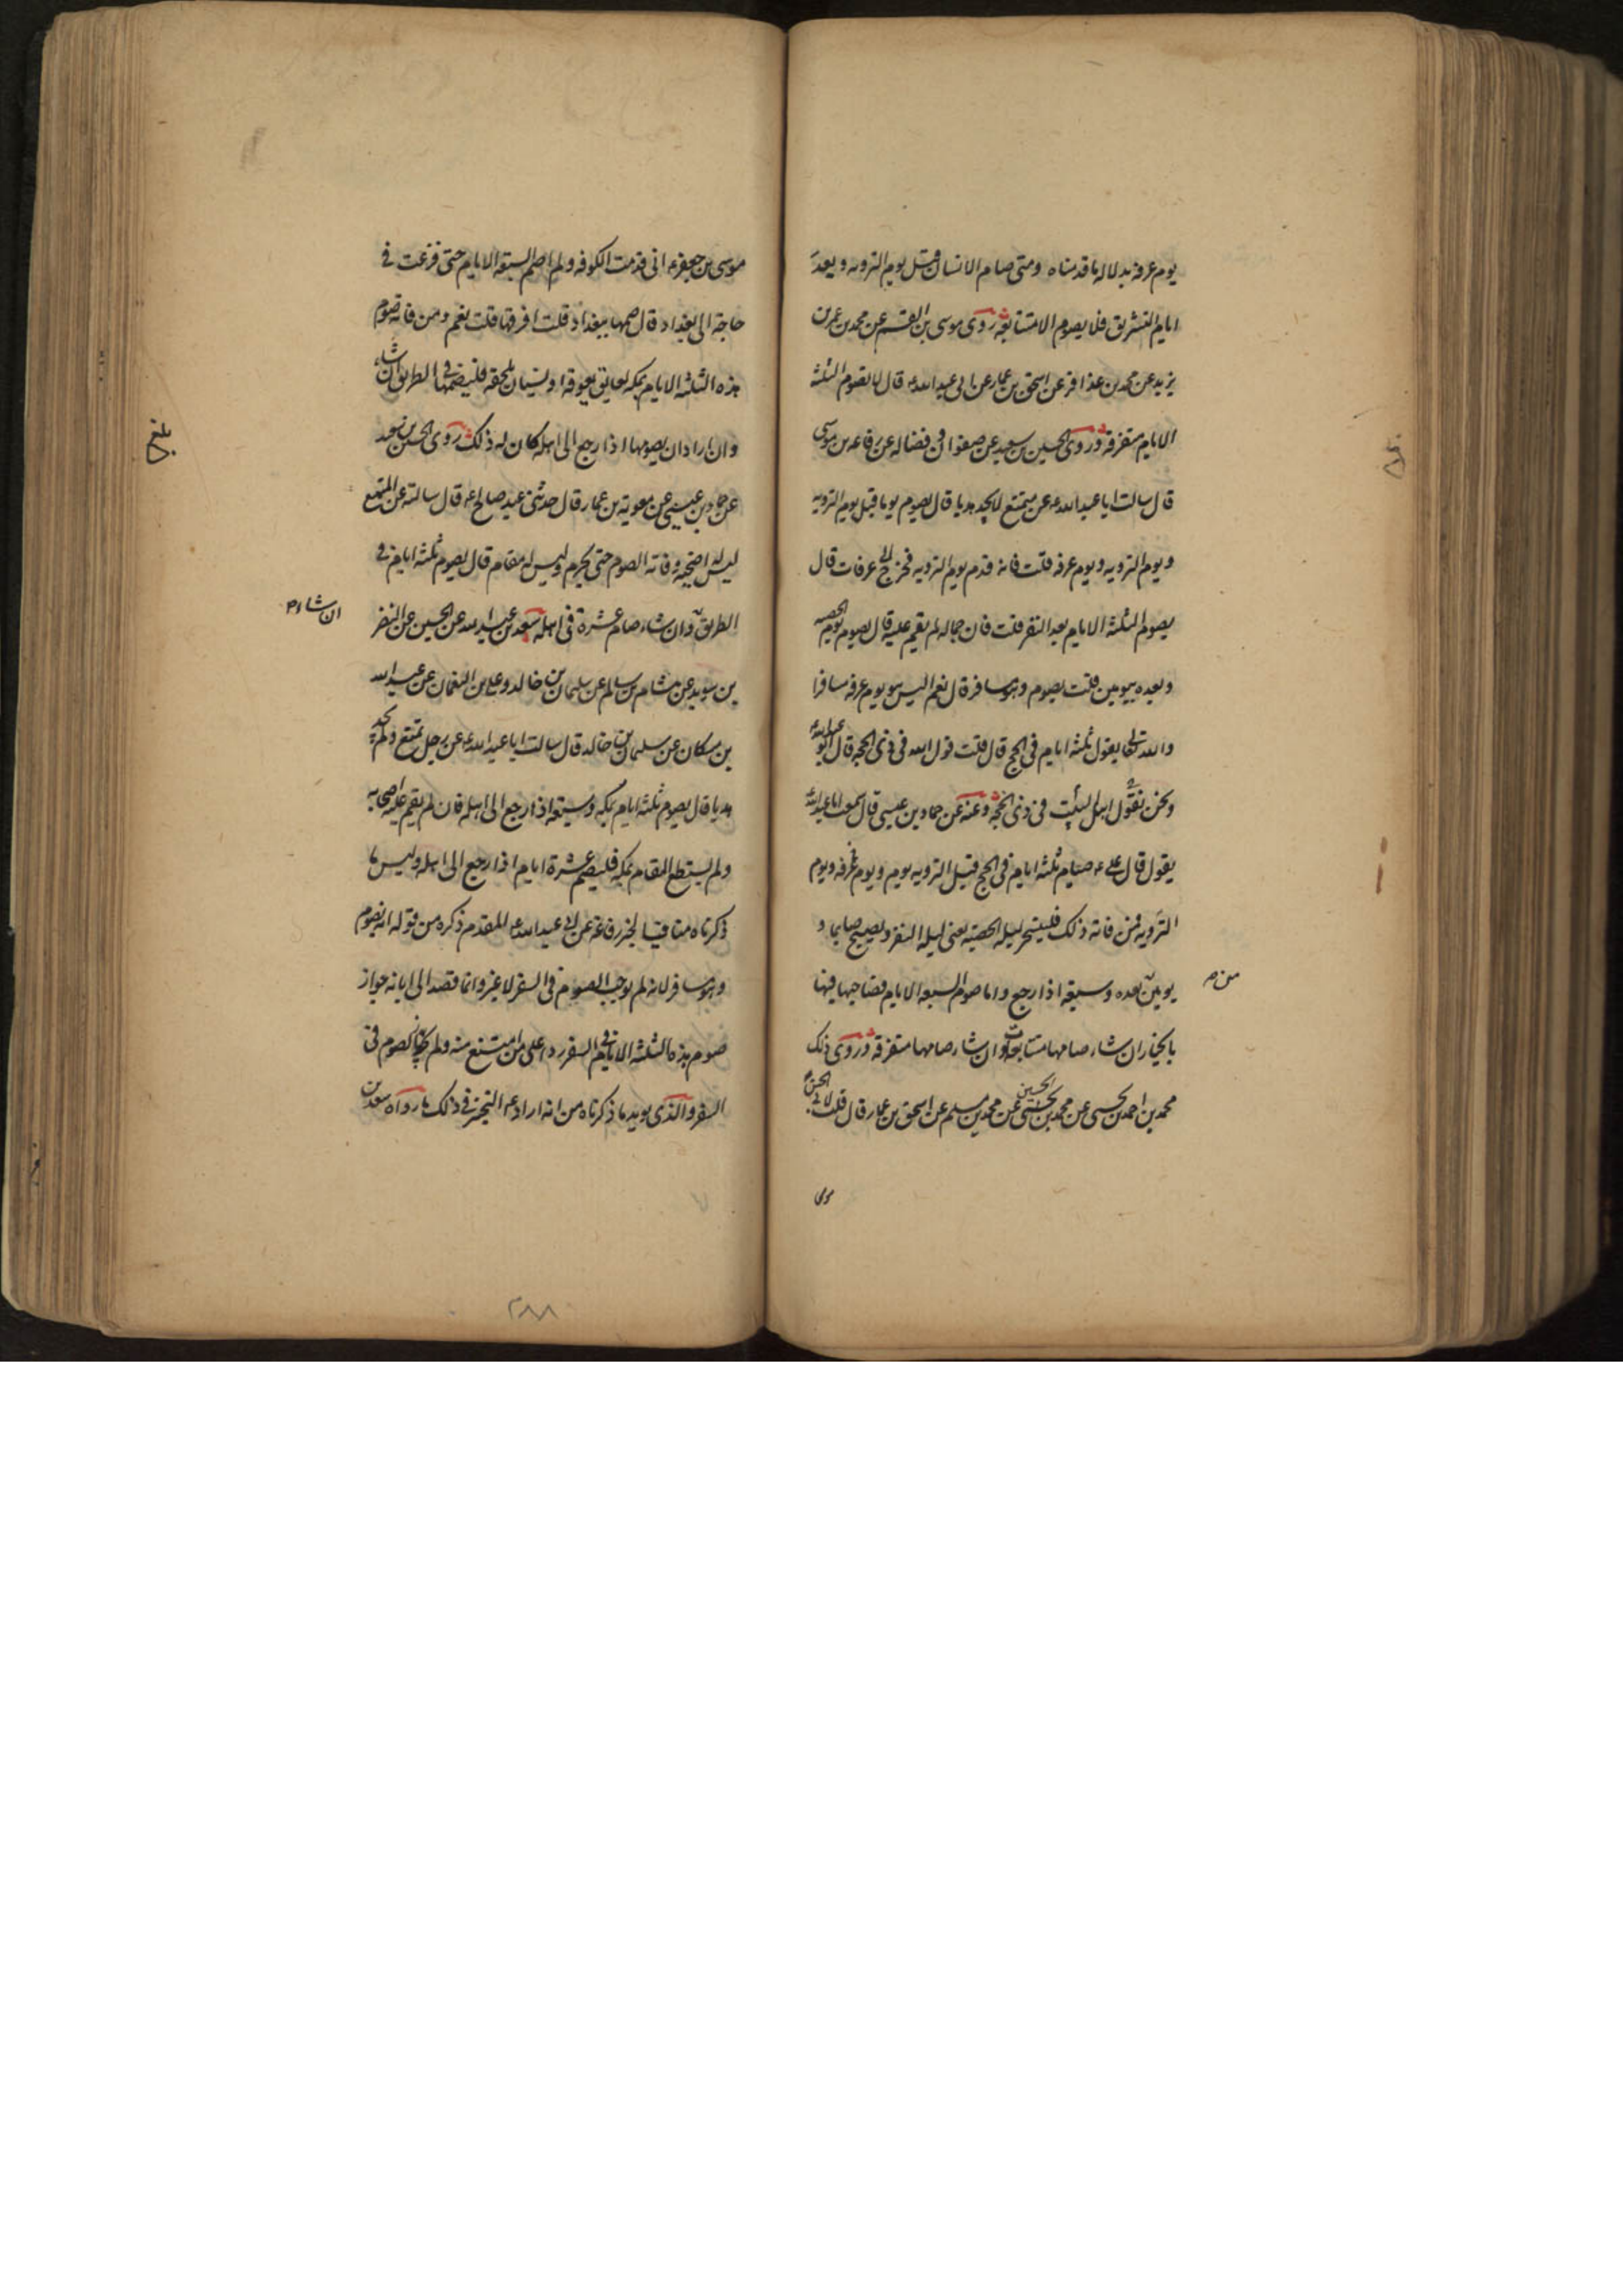 يوم عرفه بدلاله ما قدمناه ومتى صام الانسان قبل يوم الترويه وبعد
ايام التشريق فلا يصوم الا متتابعه روى موسى بن القسم عن محمد بن عمر بن
يزيد عن محمد بن عذافر عن اسحق بن عمار عن ابى عبد الله ع قال لا تصوم الثلثه
الايام متفرقه وروى الحسين بن سعيد عن صفوان وفضاله عن رفاعه بن موسى
قال سالت ابا عبد الله ع عن متمتع لا يجد هديا قال يصوم يوما قبل يوم الترويه
ويوم الترويه ويوم عرفه قلت فانه قدم يوم الترويه فخرج الى عرفات قال
يصوم الثلثه الايام بعد النفر قلت فان جماله لم يقم عليه قال يصوم يوم الحصبه
وبعده بيومين قلت يصوم وهو مسافر قال نعم اليس هو يوم عرفه مسافرا
والله تعالى يقول ثلثه ايام فى الحج قال قلت قول الله فى ذى الحجه قال ابو عبد الله ع
ونحن نقول اهل البيت فى ذى الحجه وعنه عن حماد بن عيسى قال سمعت ابا عبد الله ع
يقول قال على ع صيام ثلثه ايام فى الحج قبل الترويه بيوم ويوم عرفه ويوم
الترويه فمن فاته ذلك فليتسحر ليله الحصبه يعنى ليله النفر ويصبح صايما و
يومين بعده وسبعه اذا رجع واما صوم السبعه الايام فصاحبها فيها
من م
بالخيار ان شاء صامها متتابعات وان شاء صامها متفرقه وروى ذلك
محمد بن احمد بن يحيى عن محمد بن الحسين عن محمد بن مسلم عن اسحق بن عمار قال قلت لابى الحسن
موسى
موسى بن جعفر ع انى قدمت الكوفه ولم اصم السبعه الايام حتى فزعت فى
حاجه الى بغداد قال صمها ببغداد قلت افرقها قلت نعم ومن فاته صوم
هذه الثلثه الايام بمكه لعايق يعوقه او نسيان يلحقه فليصمها فى الطريق ان شاء
وان اراد ان يصومها اذا رجع الى اهله كان له ذلك روى الحسين بن سعيد
بلغ
عن حماد بن عيسى عن معويه بن عمار قال حدثنى عبد صالح ع قال سالته عن المتمتع
ليس له اضحيه وفاته الصوم حتى يحرم وليس له مقام قال يصوم ثلثه ايام فى
الطريق وان شاء صام عشرة فى اهله سعد بن عبد الله عن الحسين عن النضر
ان شاء م
بن سويد عن هشام بن سالم عن سليمان بن خالد وعلى بن النعمان عن عبد الله
بن مسكان عن سليمان بن خالد قال سالت ابا عبد الله ع عن رجل تمتع ولم يجد
هديا قال يصوم ثلثه ايام بمكه وسبعه اذا رجع الى اهله فان لم يقم عليه اصحابه
ولم يستطع المقام بمكه فليصم عشرة ايام اذا رجع الى اهله وليس ما
ذكرناه منافيا لخبر رفاعه عن ابى عبد الله ع المقدم ذكره من قوله انه يصوم
وهو مسافر لانه لم يوجب الصوم فى السفر لا غير وانما قصد الى ابانه جواز
صوم هذه الثلثه الايام فى السفر ردا على من امتنع منه ولم يجوز الصوم فى
السفر والذى يويد ما ذكرناه من انه اراد ع التخير فى ذلك ما رواه سعد بن
٢٨٨